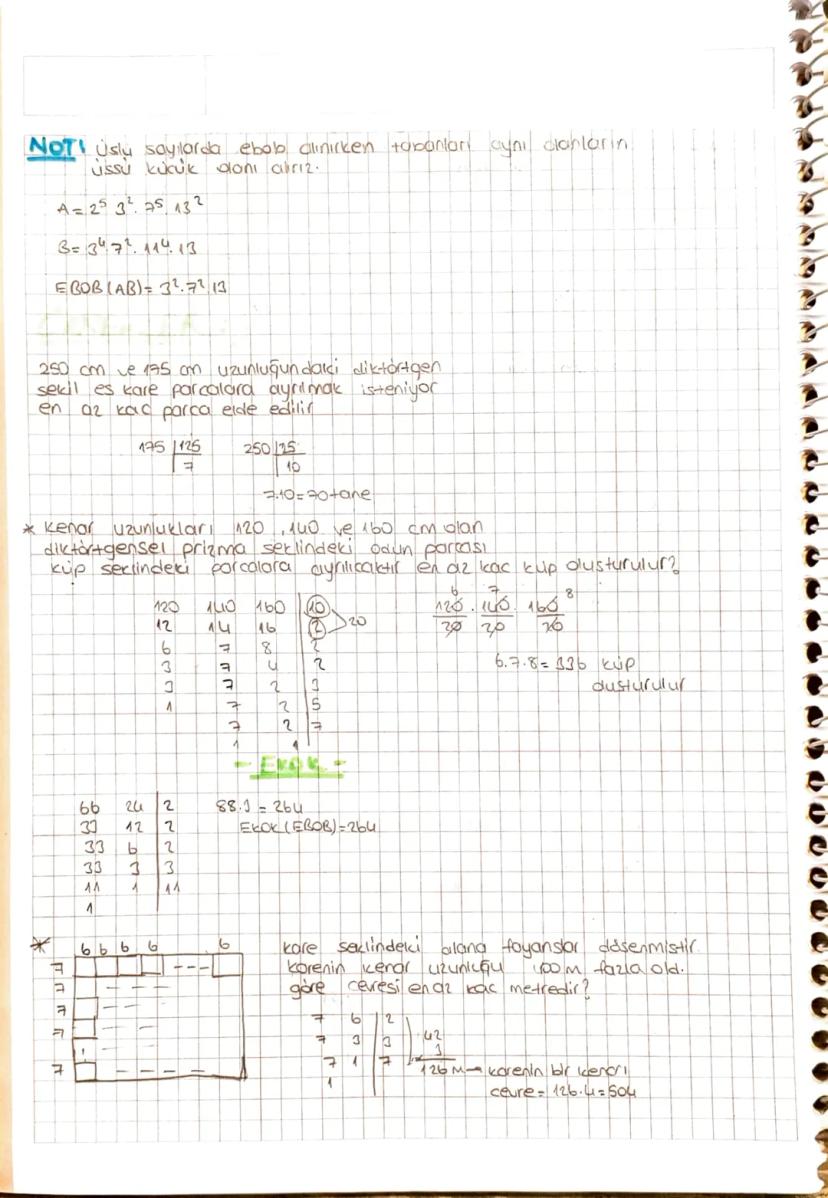 NOT! Üslü sayılarda ebob alınırken tabanları aynı olanların
üssü küçük olanı alırız.
A = 2⁵ 3². 7⁵. 13²
B = 3⁴ 7². 11⁴. 13
EBOB (AB) = 3². 7² 13
250 cm ve 175 cm uzunluğundaki diktörtgen
sekil es kare parcalara ayrılmak isteniyor
en az kac parca elde edilir
175 | 125 250 | 25
7 10
7.10 = 70 tane
* Kenar uzunlukları 120, 140 ve 160 cm olan
diktörtgensel prizma seklindeki odun parcası
küp seklindeki parcalara ayrılıcaktır en az kac küp olusturulur?
120 140 160 | 10
12 14 16 | 2 > 20
6 7 8 | 2
3 7 4 | 2
3 7 2 | 3
1 7 2 | 5
7 2 | 7
1 1
6 7 8
120 . 140 . 160
20 20 20
6.7.8 = 336 küp
olusturulur
- EKOK -
66 24 | 2
33 12 | 2
33 6 | 2
33 3 | 3
11 1 | 11
1
88.3 = 264
EKOK (EBOB) = 264
* 6 6 6 6 6
7
7
7
7
7
kare seklindeki alana fayanslar dösenmistir.
karenin kenar uzunlugu 100 m fazla old.
göre cevresi en az kac metredir?
7 6 | 2
7 3 | 3
7 1 | 7
1
42
3
126 M → karenin bir kenarı
cevre = 126.4 = 504